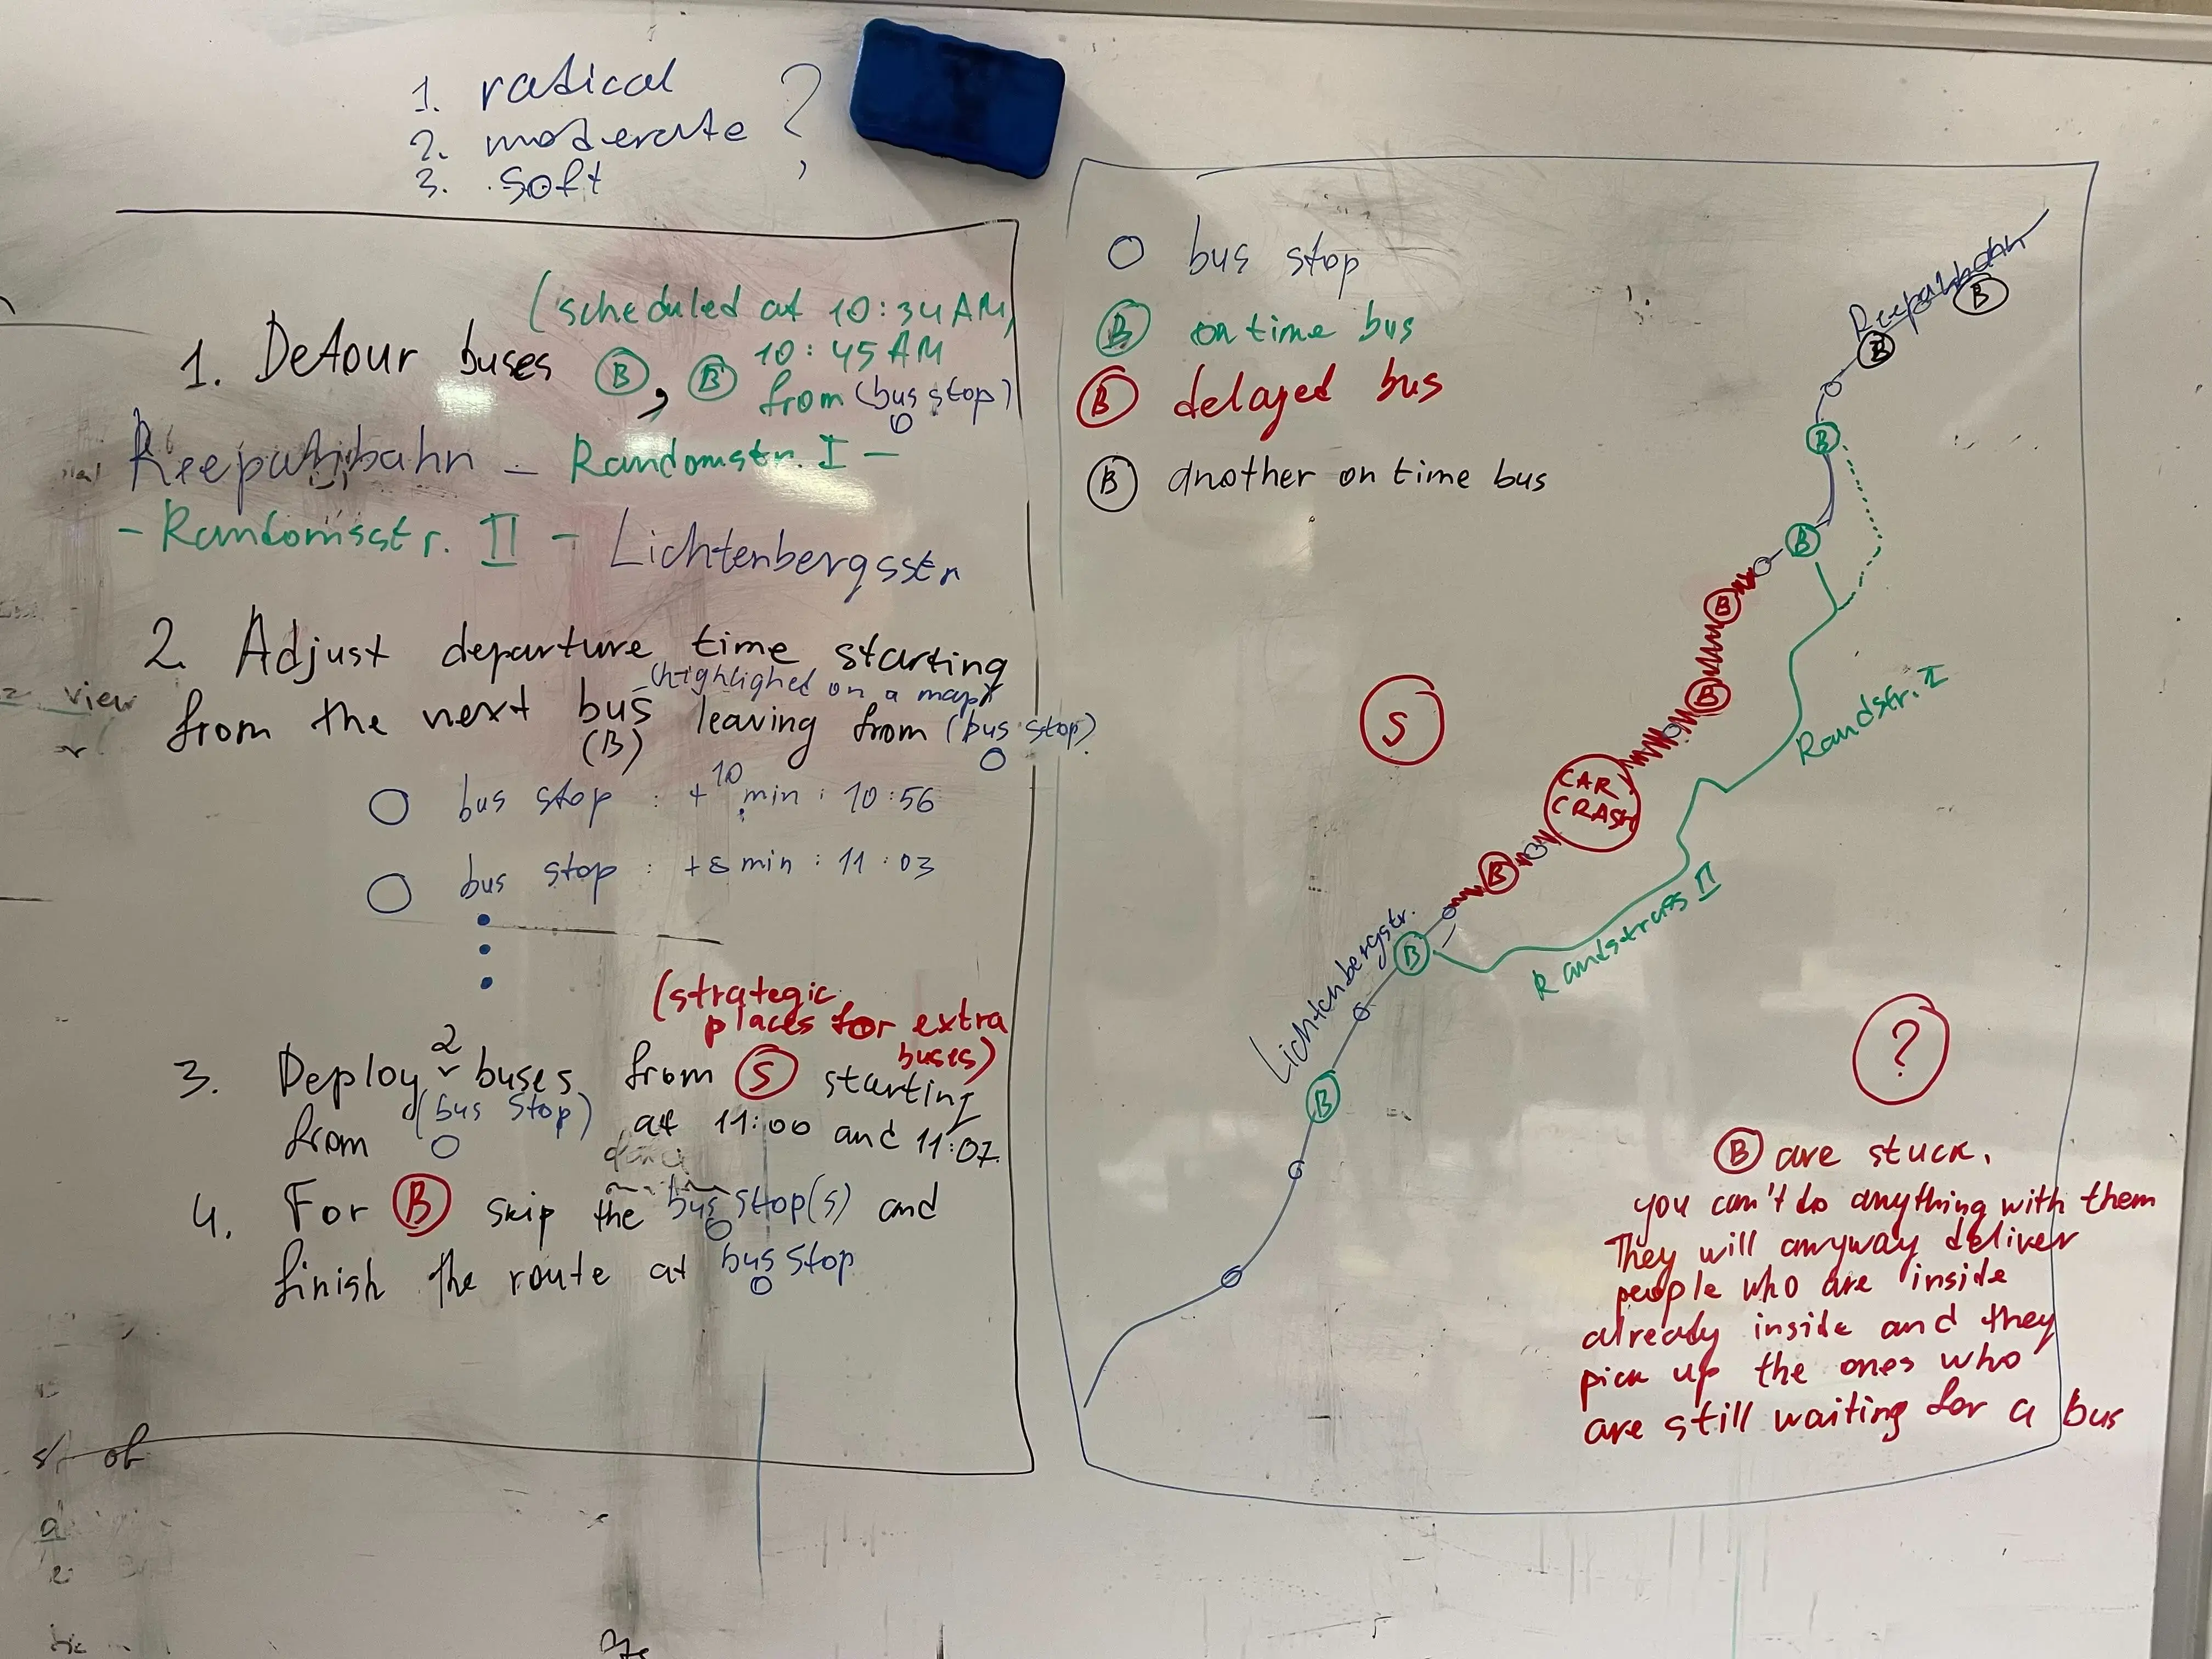 1. radical
2. moderate ?
3. soft
(scheduled at 10:34 AM,
1. Detour buses B, B 10:45 AM
from (bus stop)
Reeparhbahn - Randomstr. I -
- Randomsstr. II - Lichtenbergsstr
2. Adjust departure time starting
(highlighed on a map)
from the next bus leaving from (bus stop)
(B)
bus stop : + 10 min : 10:56
bus stop : +8 min : 11:03
(strategic
places for extra
buses)
3. Deploy 2 buses from S starting
from (bus stop) at 11:00 and 11:07
4. For B skip the bus stop(s) and
finish the route at bus stop
view
of
bus stop
B on time bus
B delayed bus
B another on time bus
Reeparhbahn
B
B
B
B
B
B
S
Randstr. I
CAR
CRASH
B
B
Lichtenbergstr.
Randstrass II
B
?
B are stuck.
you can't do anything with them
They will anyway deliver
people who are inside
already inside and they
pick up the ones who
are still waiting for a bus